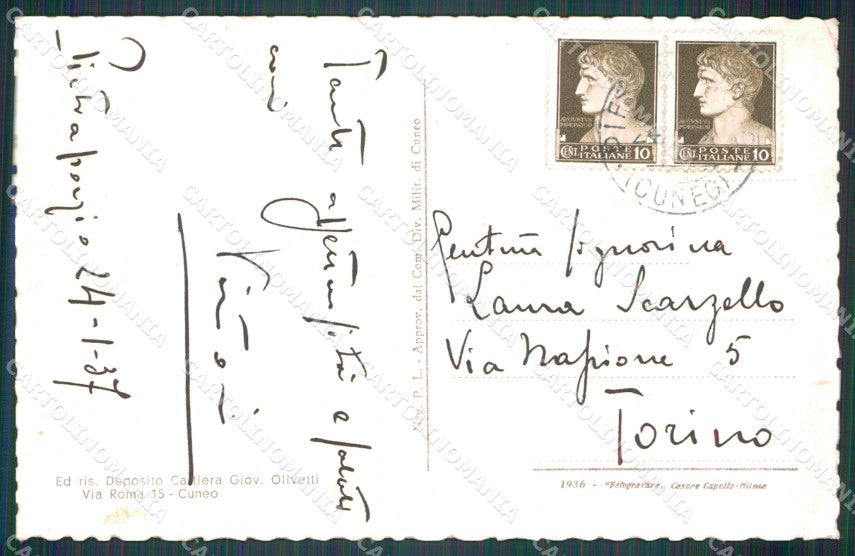 Pietraporzio 24-1-37
Tante affettuosità e saluti
cari
AVGVSTVS
IMPERATOR
CENT. POSTE
ITALIANE 10
AVGVSTVS
IMPERATOR
CENT. POSTE
ITALIANE 10
(CUNEO)
Gentma Signorina
Laura Scarzello
Via Napione 5
Torino
Neg. P. L. - Approv. dal Com. Div. Milit. di Cuneo
Ed ris. Deposito Cartiera Giov. Olivetti
Via Roma 15 - Cuneo
1936 - "Fotogravure" Cesare Capello-Milano
CARTOLINOMANIA